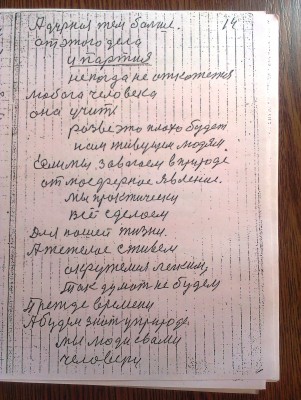 14
Ядерная тем более.
от этого дела
и партия
некогда не откажетя
любога человека
она учит
разве это плохо будет
нам живущем людям.
Если мы завагаем в природе
от мосферное явление.
мы практически
всё сделоем
Для нашей жизни.
А тежелае с тихем
окружения легким,
так думат не будем
Прежде времени
А будем знат у природе.
мы люди свами
человеки